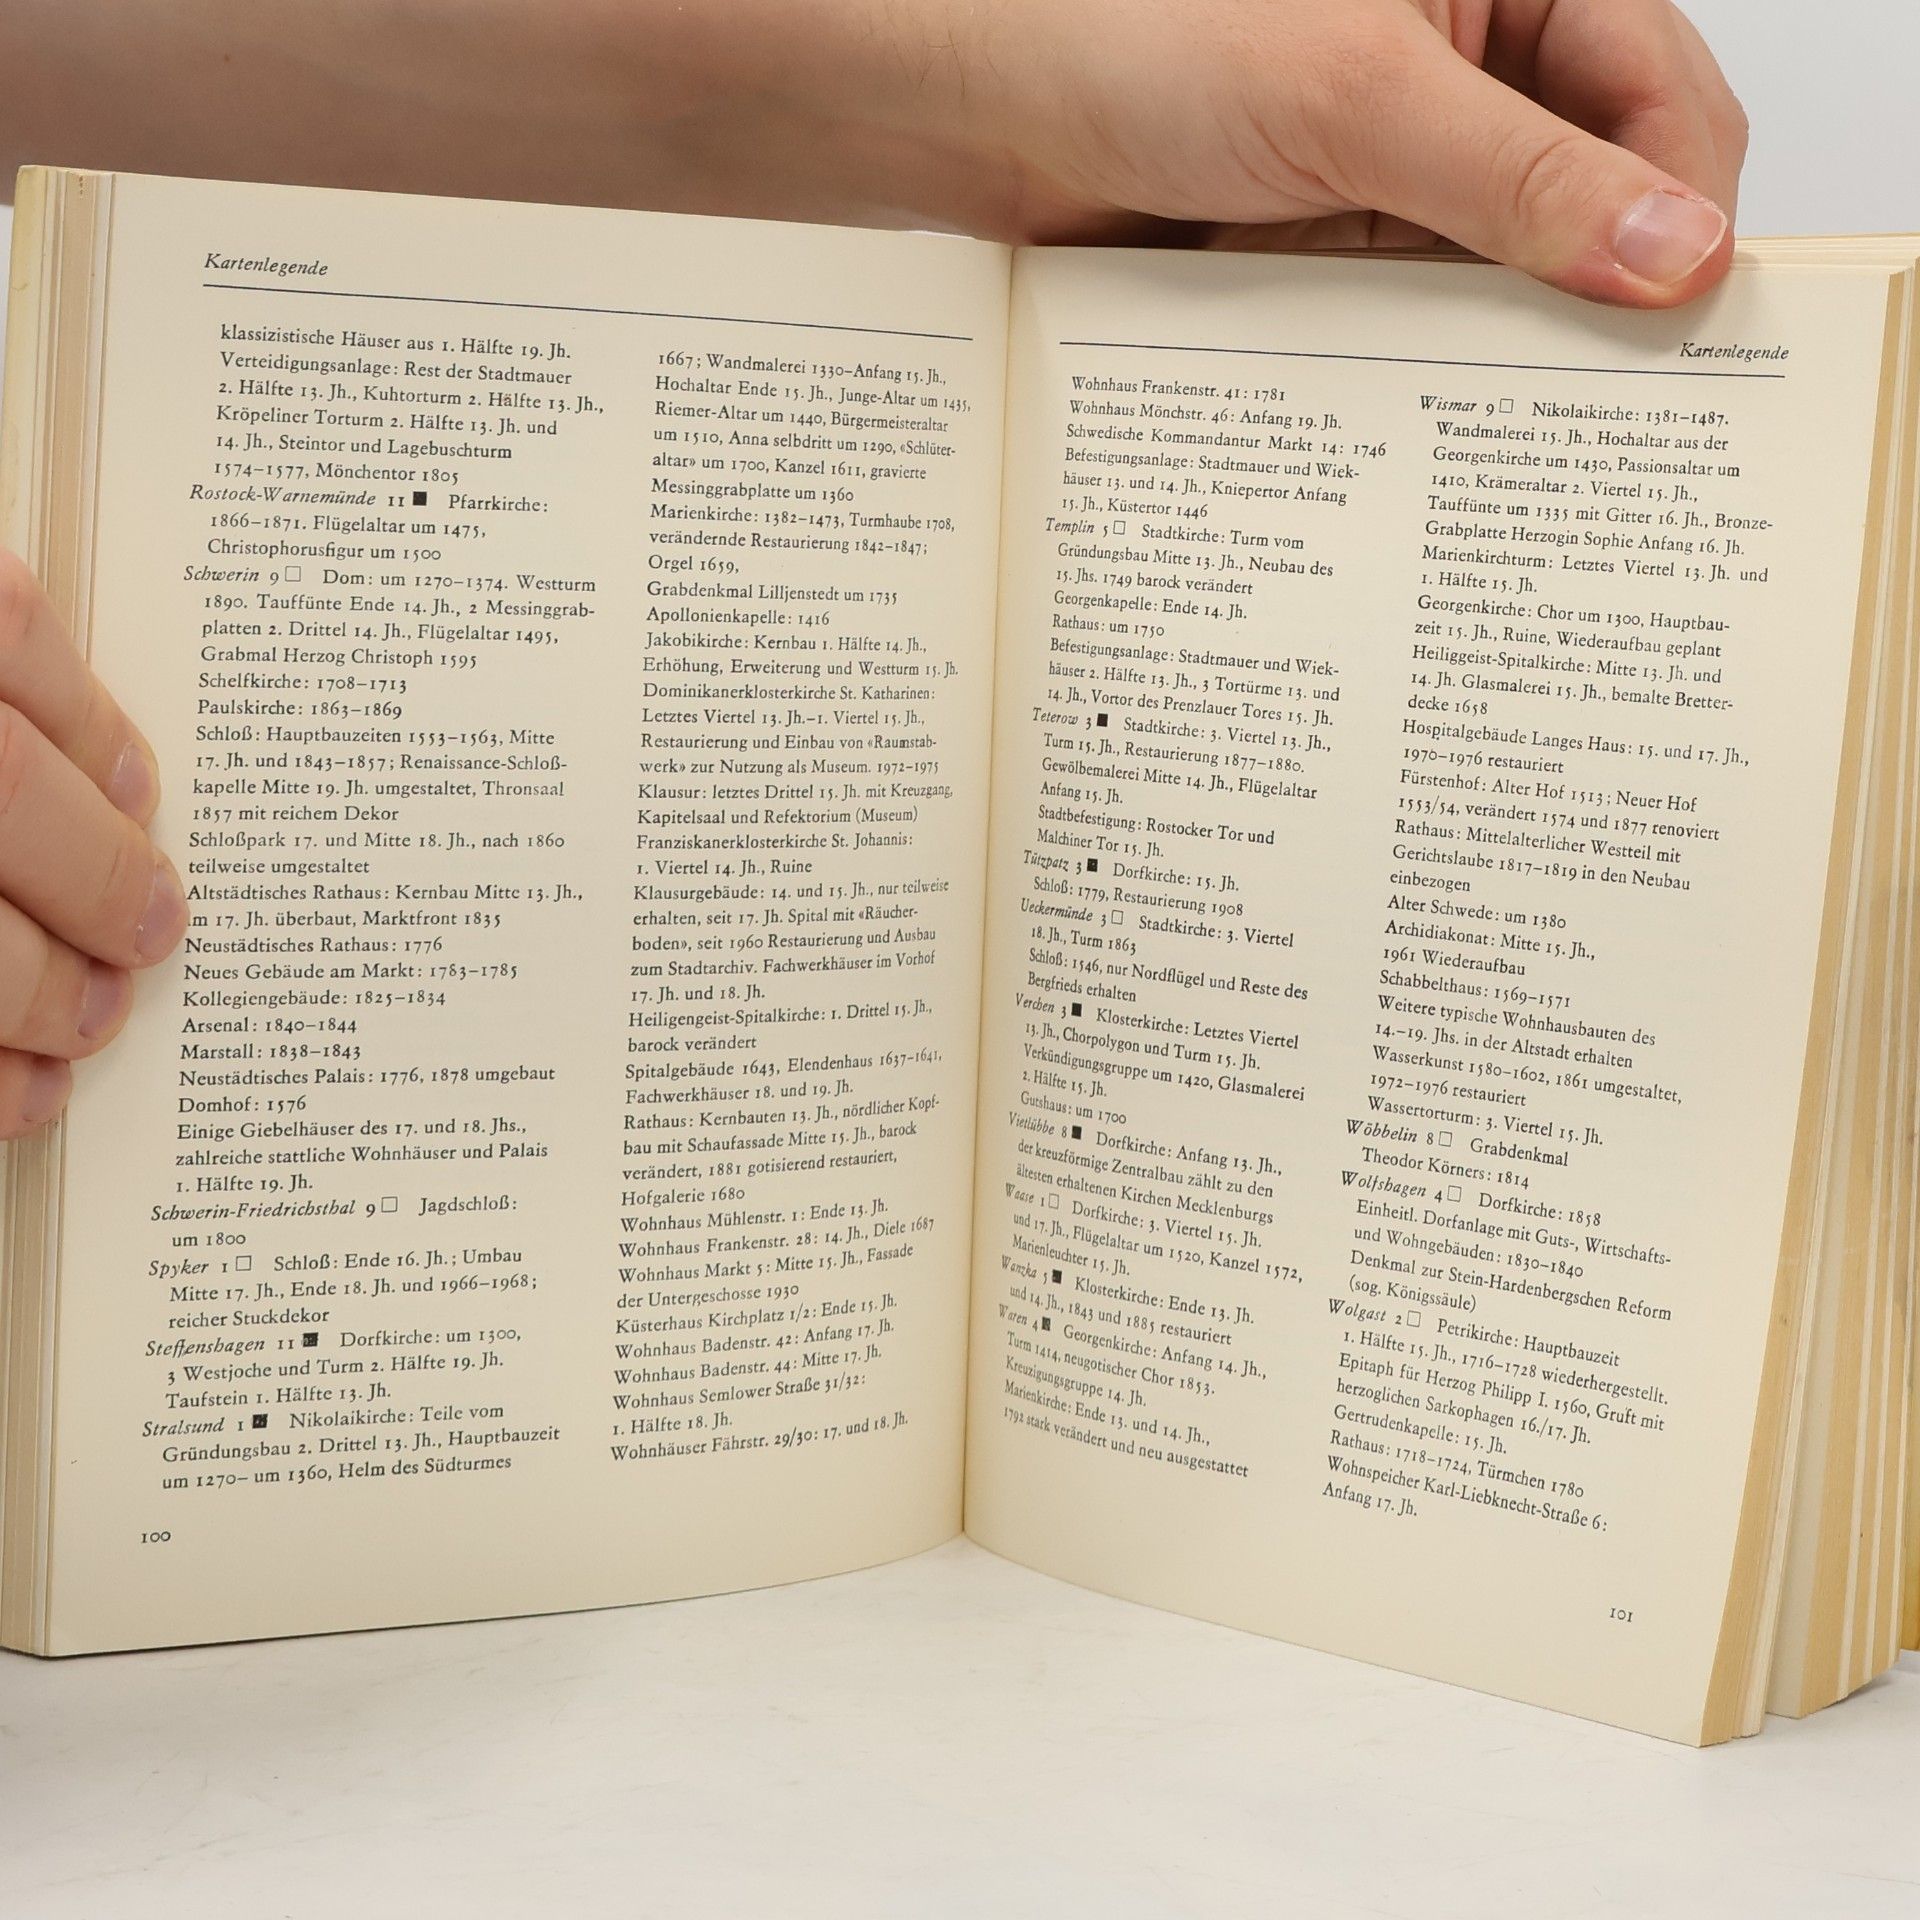 Kartenlegende
klassizistische Häuser aus 1. Hälfte 19. Jh.
Verteidigungsanlage: Rest der Stadtmauer
2. Hälfte 13. Jh., Kuhtorturm 2. Hälfte 13. Jh.,
Kröpeliner Torturm 2. Hälfte 13. Jh. und
14. Jh., Steintor und Lagebuschturm
1574–1577, Mönchentor 1805
Rostock-Warnemünde 11 ■ Pfarrkirche:
1866–1871. Flügelaltar um 1475,
Christophorusfigur um 1500
Schwerin 9 □ Dom: um 1270–1374. Westturm
1890. Tauffünte Ende 14. Jh., 2 Messinggrab-
platten 2. Drittel 14. Jh., Flügelaltar 1495,
Grabmal Herzog Christoph 1595
Schelfkirche: 1708–1713
Paulskirche: 1863–1869
Schloß: Hauptbauzeiten 1553–1563, Mitte
17. Jh. und 1843–1857; Renaissance-Schloß-
kapelle Mitte 19. Jh. umgestaltet, Thronsaal
1857 mit reichem Dekor
Schloßpark 17. und Mitte 18. Jh., nach 1860
teilweise umgestaltet
Altstädtisches Rathaus: Kernbau Mitte 13. Jh.,
im 17. Jh. überbaut, Marktfront 1835
Neustädtisches Rathaus: 1776
Neues Gebäude am Markt: 1783–1785
Kollegiengebäude: 1825–1834
Arsenal: 1840–1844
Marstall: 1838–1843
Neustädtisches Palais: 1776, 1878 umgebaut
Domhof: 1576
Einige Giebelhäuser des 17. und 18. Jhs.,
zahlreiche stattliche Wohnhäuser und Palais
1. Hälfte 19. Jh.
Schwerin-Friedrichsthal 9 □ Jagdschloß:
um 1800
Spyker 1 □ Schloß: Ende 16. Jh.; Umbau
Mitte 17. Jh., Ende 18. Jh. und 1966–1968;
reicher Stuckdekor
Steffenshagen 11 ■ Dorfkirche: um 1300,
3 Westjoche und Turm 2. Hälfte 19. Jh.
Taufstein 1. Hälfte 13. Jh.
Stralsund 1 ■ Nikolaikirche: Teile vom
Gründungsbau 2. Drittel 13. Jh., Hauptbauzeit
um 1270– um 1360, Helm des Südturmes
1667; Wandmalerei 1330–Anfang 15. Jh.,
Hochaltar Ende 15. Jh., Junge-Altar um 1435,
Riemer-Altar um 1440, Bürgermeisteraltar
um 1510, Anna selbdritt um 1290, «Schlüter-
altar» um 1700, Kanzel 1611, gravierte
Messinggrabplatte um 1360
Marienkirche: 1382–1473, Turmhaube 1708,
verändernde Restaurierung 1842–1847;
Orgel 1659,
Grabdenkmal Lilljenstedt um 1735
Apollonienkapelle: 1416
Jakobikirche: Kernbau 1. Hälfte 14. Jh.,
Erhöhung, Erweiterung und Westturm 15. Jh.
Dominikanerklosterkirche St. Katharinen:
Letztes Viertel 13. Jh.–1. Viertel 15. Jh.,
Restaurierung und Einbau von «Raumstab-
werk» zur Nutzung als Museum. 1972–1975
Klausur: letztes Drittel 15. Jh. mit Kreuzgang,
Kapitelsaal und Refektorium (Museum)
Franziskanerklosterkirche St. Johannis:
1. Viertel 14. Jh., Ruine
Klausurgebäude: 14. und 15. Jh., nur teilweise
erhalten, seit 17. Jh. Spital mit «Räucher-
boden», seit 1960 Restaurierung und Ausbau
zum Stadtarchiv. Fachwerkhäuser im Vorhof
17. Jh. und 18. Jh.
Heiligengeist-Spitalkirche: 1. Drittel 15. Jh.,
barock verändert
Spitalgebäude 1643, Elendenhaus 1637–1641,
Fachwerkhäuser 18. und 19. Jh.
Rathaus: Kernbauten 13. Jh., nördlicher Kopf-
bau mit Schaufassade Mitte 15. Jh., barock
verändert, 1881 gotisierend restauriert,
Hofgalerie 1680
Wohnhaus Mühlenstr. 1: Ende 13. Jh.
Wohnhaus Frankenstr. 28: 14. Jh., Diele 1687
Wohnhaus Markt 5: Mitte 15. Jh., Fassade
der Untergeschosse 1930
Küsterhaus Kirchplatz 1/2: Ende 15. Jh.
Wohnhaus Badenstr. 42: Anfang 17. Jh.
Wohnhaus Badenstr. 44: Mitte 17. Jh.
Wohnhaus Semlower Straße 31/32:
1. Hälfte 18. Jh.
Wohnhäuser Fährstr. 29/30: 17. und 18. Jh.
100
Kartenlegende
Wohnhaus Frankenstr. 41: 1781
Wohnhaus Mönchstr. 46: Anfang 19. Jh.
Schwedische Kommandantur Markt 14: 1746
Befestigungsanlage: Stadtmauer und Wiek-
häuser 13. und 14. Jh., Kniepertor Anfang
15. Jh., Küstertor 1446
Templin 5 □ Stadtkirche: Turm vom
Gründungsbau Mitte 13. Jh., Neubau des
15. Jhs. 1749 barock verändert
Georgenkapelle: Ende 14. Jh.
Rathaus: um 1750
Befestigungsanlage: Stadtmauer und Wiek-
häuser 2. Hälfte 13. Jh., 3 Tortürme 13. und
14. Jh., Vortor des Prenzlauer Tores 15. Jh.
Teterow 3 ■ Stadtkirche: 3. Viertel 13. Jh.,
Turm 15. Jh., Restaurierung 1877–1880.
Gewölbemalerei Mitte 14. Jh., Flügelaltar
Anfang 15. Jh.
Stadtbefestigung: Rostocker Tor und
Malchiner Tor 15. Jh.
Tützpatz 3 ■ Dorfkirche: 15. Jh.
Schloß: 1779, Restaurierung 1908
Ueckermünde 3 □ Stadtkirche: 3. Viertel
18. Jh., Turm 1863
Schloß: 1546, nur Nordflügel und Reste des
Bergfrieds erhalten
Verchen 3 ■ Klosterkirche: Letztes Viertel
13. Jh., Chorpolygon und Turm 15. Jh.
Verkündigungsgruppe um 1420, Glasmalerei
2. Hälfte 15. Jh.
Gutshaus: um 1700
Vietlübbe 8 ■ Dorfkirche: Anfang 13. Jh.,
der kreuzförmige Zentralbau zählt zu den
ältesten erhaltenen Kirchen Mecklenburgs
Waase 1 □ Dorfkirche: 3. Viertel 15. Jh.
und 17. Jh., Flügelaltar um 1520, Kanzel 1572,
Marienleuchter 15. Jh.
Wanzka 5 ■ Klosterkirche: Ende 13. Jh.
und 14. Jh., 1843 und 1885 restauriert
Waren 4 ■ Georgenkirche: Anfang 14. Jh.,
Turm 1414, neugotischer Chor 1853.
Kreuzigungsgruppe 14. Jh.
Marienkirche: Ende 13. und 14. Jh.,
1792 stark verändert und neu ausgestattet
Wismar 9 □ Nikolaikirche: 1381–1487.
Wandmalerei 15. Jh., Hochaltar aus der
Georgenkirche um 1430, Passionsaltar um
1410, Krämeraltar 2. Viertel 15. Jh.,
Tauffünte um 1335 mit Gitter 16. Jh., Bronze-
Grabplatte Herzogin Sophie Anfang 16. Jh.
Marienkirchturm: Letztes Viertel 13. Jh. und
1. Hälfte 15. Jh.
Georgenkirche: Chor um 1300, Hauptbau-
zeit 15. Jh., Ruine, Wiederaufbau geplant
Heiliggeist-Spitalkirche: Mitte 13. Jh. und
14. Jh. Glasmalerei 15. Jh., bemalte Bretter-
decke 1658
Hospitalgebäude Langes Haus: 15. und 17. Jh.,
1970–1976 restauriert
Fürstenhof: Alter Hof 1513; Neuer Hof
1553/54, verändert 1574 und 1877 renoviert
Rathaus: Mittelalterlicher Westteil mit
Gerichtslaube 1817–1819 in den Neubau
einbezogen
Alter Schwede: um 1380
Archidiakonat: Mitte 15. Jh.,
1961 Wiederaufbau
Schabbelthaus: 1569–1571
Weitere typische Wohnhausbauten des
14.–19. Jhs. in der Altstadt erhalten
Wasserkunst 1580–1602, 1861 umgestaltet,
1972–1976 restauriert
Wassertorturm: 3. Viertel 15. Jh.
Wöbbelin 8 □ Grabdenkmal
Theodor Körners: 1814
Wolfshagen 4 □ Dorfkirche: 1858
Einheitl. Dorfanlage mit Guts-, Wirtschafts-
und Wohngebäuden: 1830–1840
Denkmal zur Stein-Hardenbergschen Reform
(sog. Königssäule)
Wolgast 2 □ Petrikirche: Hauptbauzeit
1. Hälfte 15. Jh., 1716–1728 wiederhergestellt.
Epitaph für Herzog Philipp I. 1560, Gruft mit
herzoglichen Sarkophagen 16./17. Jh.
Gertrudenkapelle: 15. Jh.
Rathaus: 1718–1724, Türmchen 1780
Wohnspeicher Karl-Liebknecht-Straße 6:
Anfang 17. Jh.
101